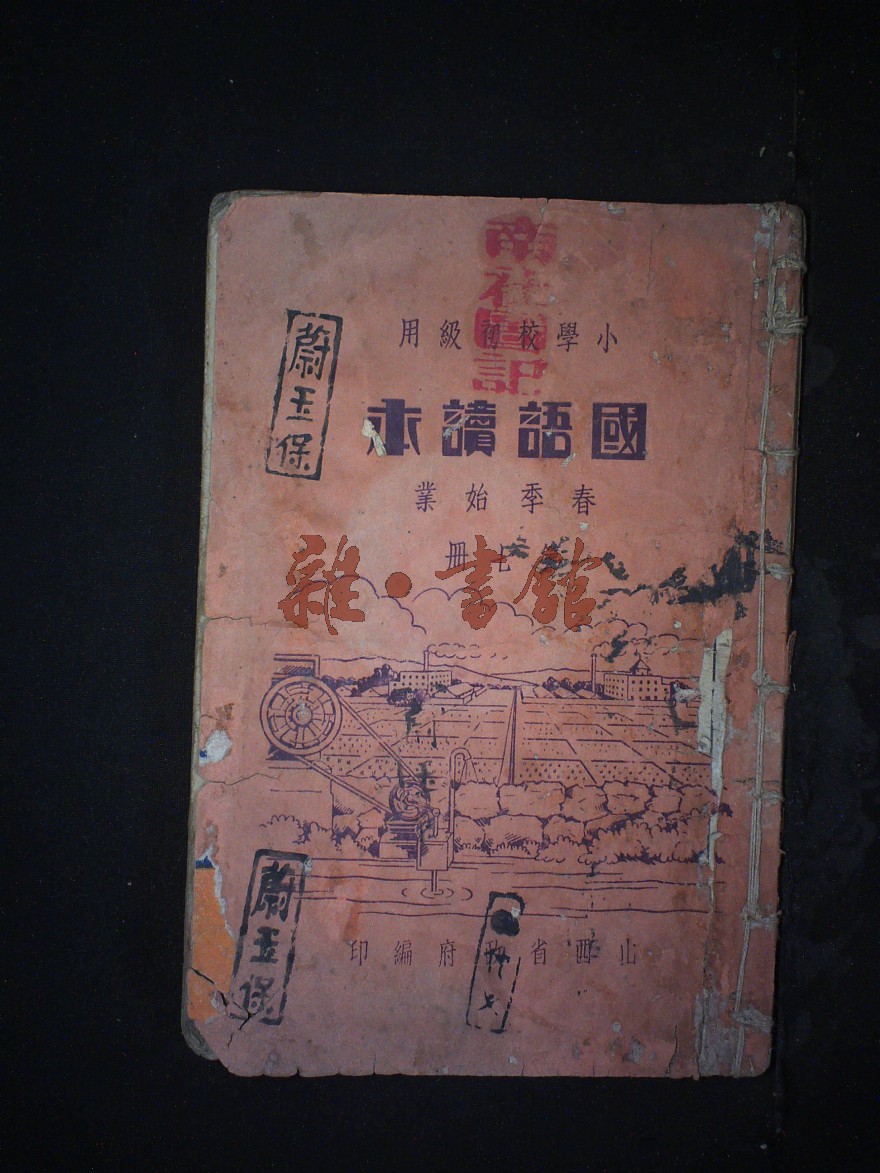 南社圖記
小學校初級用
國語讀本
春季始業
七冊
雜·書館
山西省政府編印
蔚玉保
蔚玉保